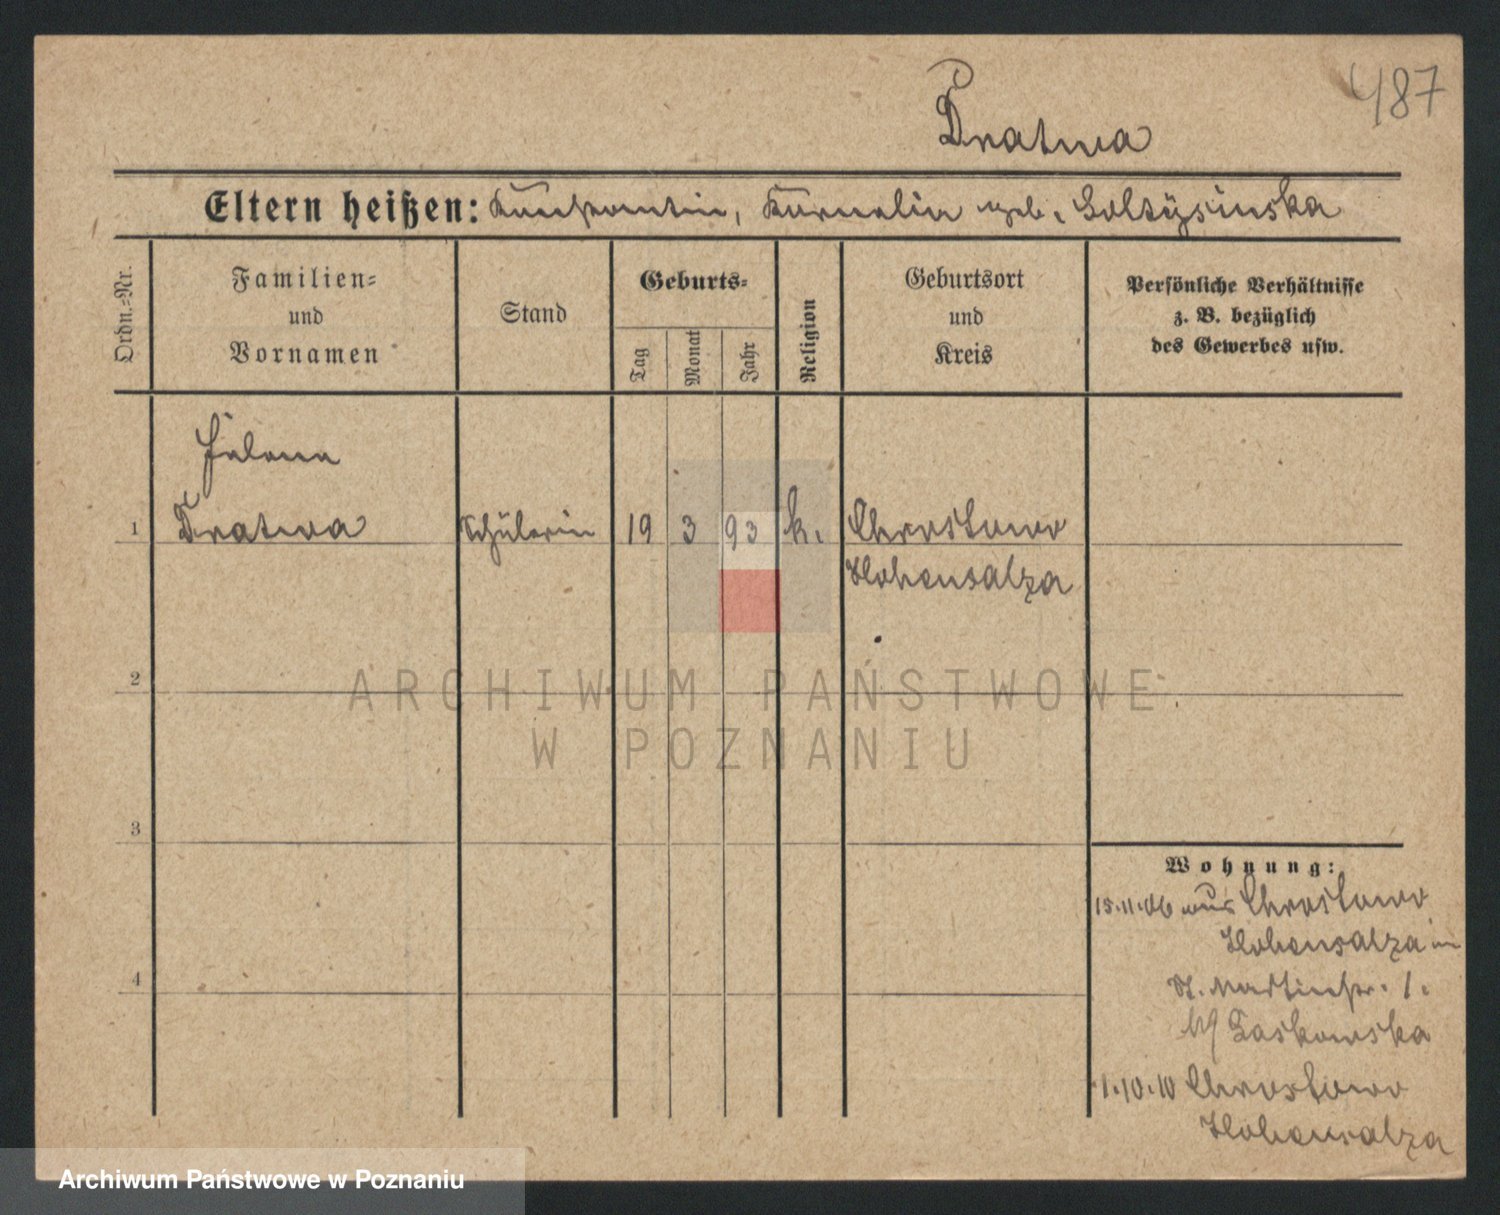 487
Dratwa
Eltern heißen: Konstantin, Kornelia geb. Goltysinska
Ordn.=Nr.
Familien=
und
Vornamen
Stand
Geburts=
Tag
Monat
Jahr
Religion
Geburtsort
und
Kreis
Persönliche Verhältnisse
z. B. bezüglich
des Gewerbes usw.
Helena
1 Dratwa Schülerin 19 3 93 k. Chrostowo
Hohensalza
2
3
4
ARCHIWUM PAŃSTWOWE
W POZNANIU
Wohnung:
15.11.06 aus Chrostowo
Hohensalza
St. Martinstr. 1.
Laskowska
1.10.10 Chrostowo
Hohensalza
Archiwum Państwowe w Poznaniu